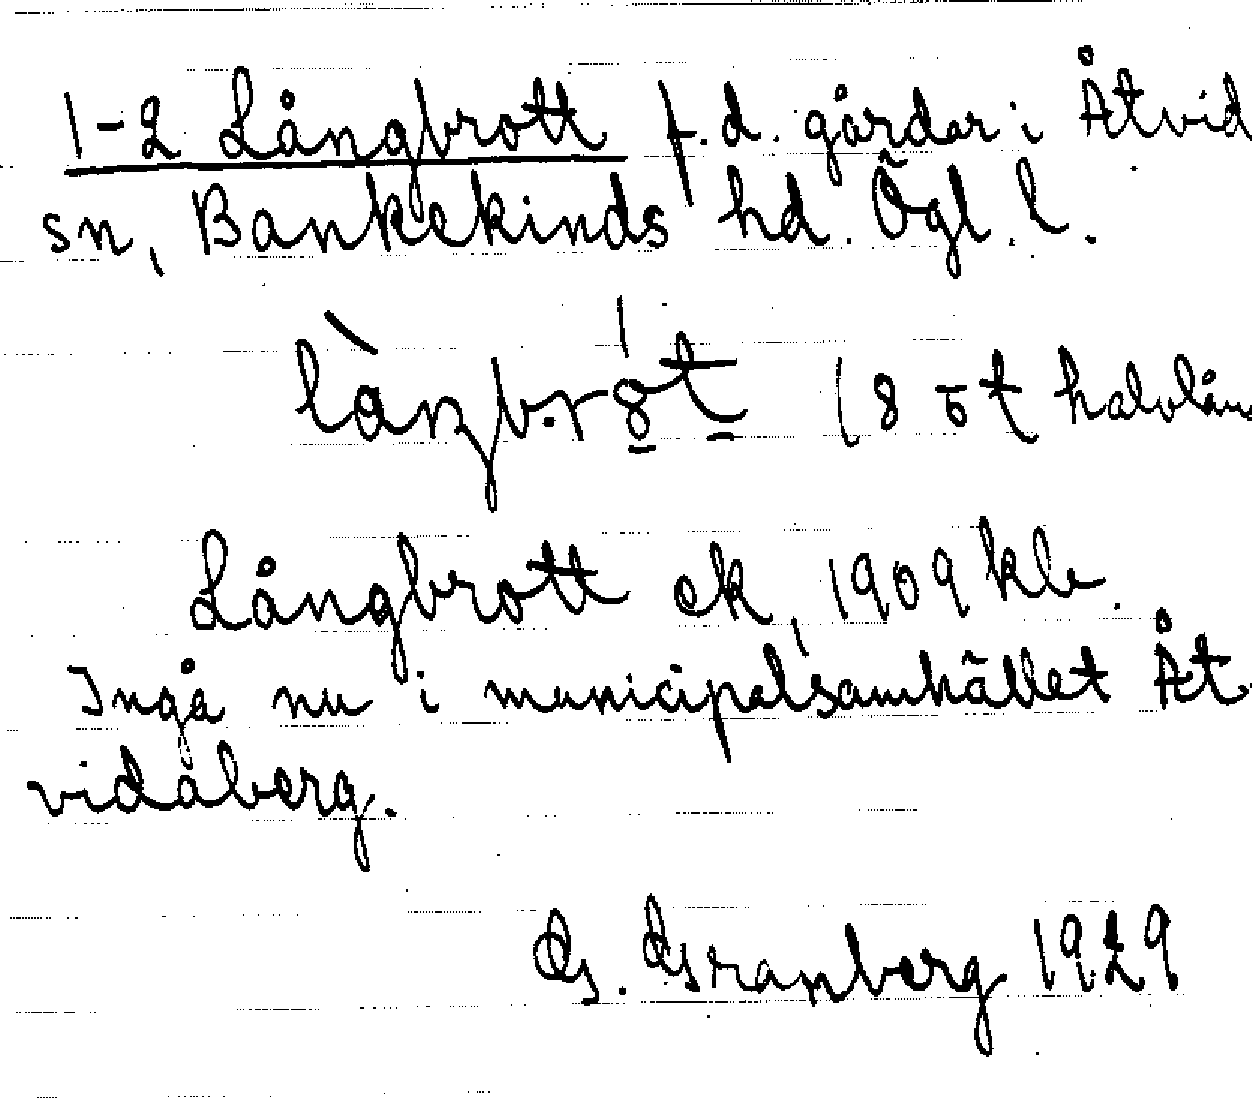 1-2 Långbrott f.d. gårdar i Åtvid
sn, Bankekinds hd. Ögl. l.
(8 o t halvlån
Långbrott ek, 1909 kb.
Ingå nu i municipalsamhället Åt-
vidaberg.
G. Granberg 1929